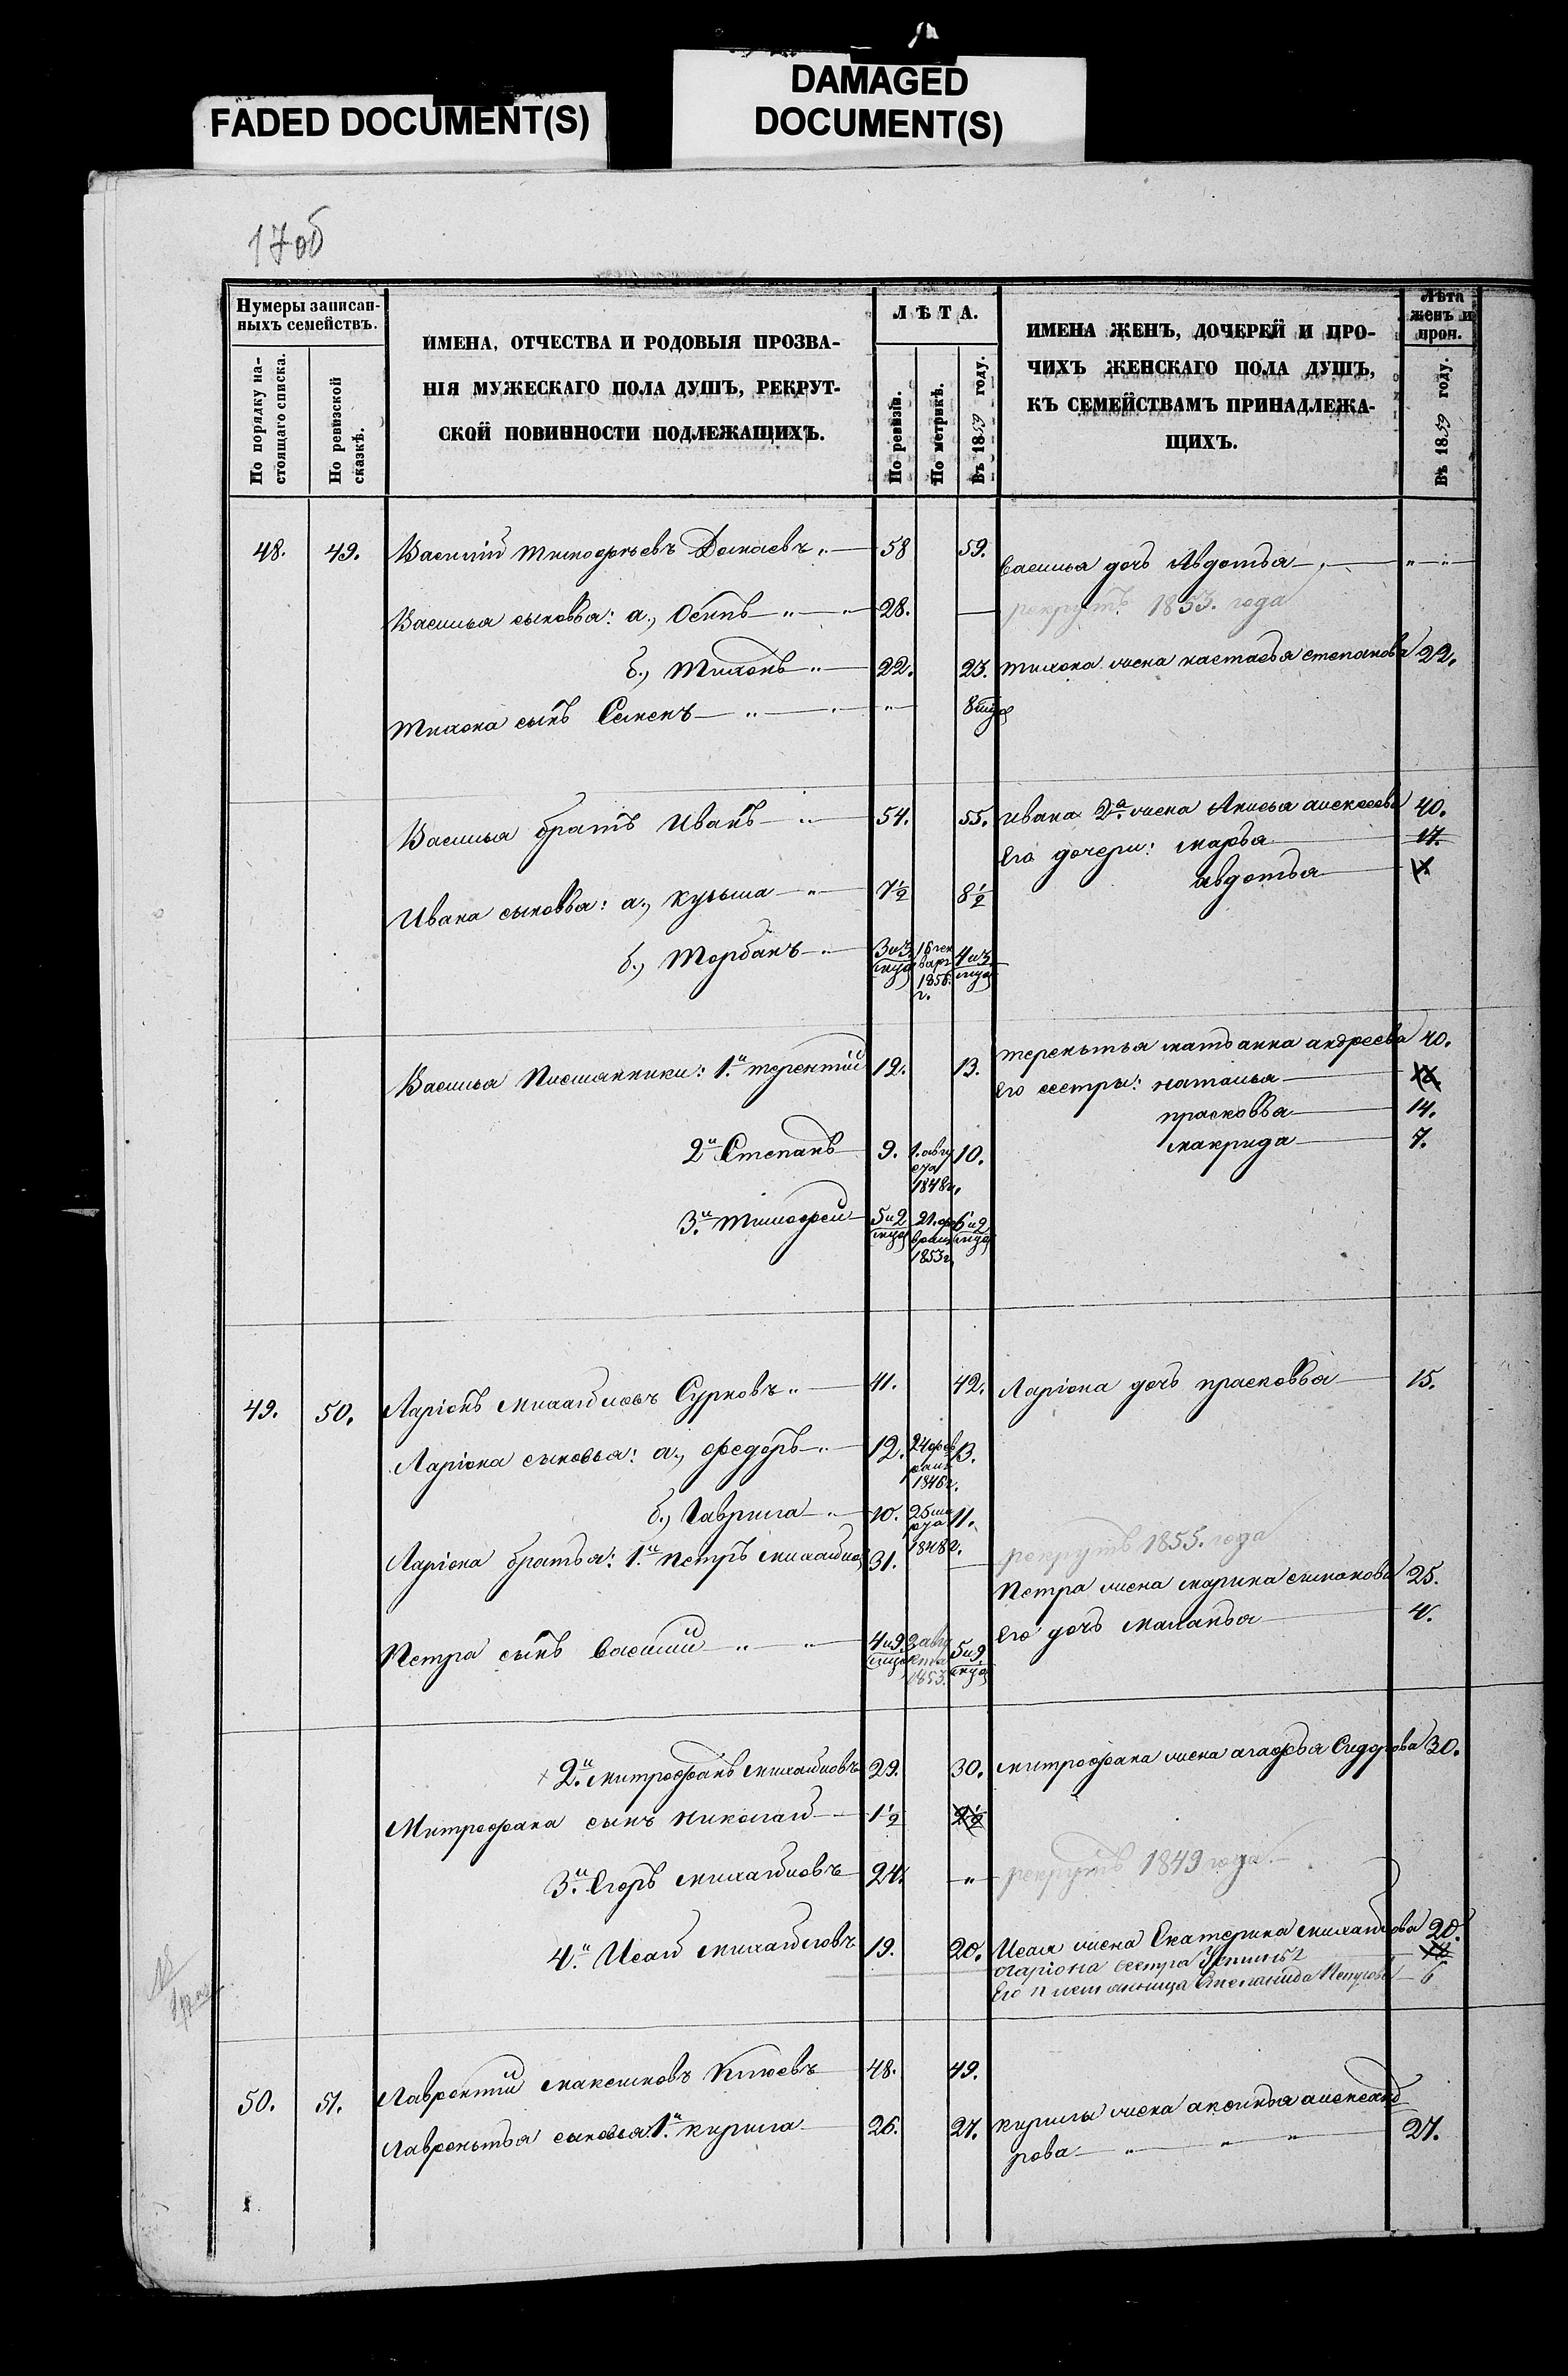 FADED DOCUMENT(S)
DAMAGED
DOCUMENT(S)
17об
Нумеры записан-
ныхъ семействъ.
По порядку на-
стоящаго списка.
По ревизской
сказкѣ.
ИМЕНА, ОТЧЕСТВА И РОДОВЫЯ ПРОЗВА-
НІЯ МУЖЕСКАГО ПОЛА ДУШЪ, РЕКРУТ-
СКОЙ ПОВИННОСТИ ПОДЛЕЖАЩИХЪ.
ЛѢТА.
По ревизіи.
По метрикѣ.
Въ 1859 году.
ИМЕНА ЖЕНЪ, ДОЧЕРЕЙ И ПРО-
ЧИХЪ ЖЕНСКАГО ПОЛА ДУШЪ,
КЪ СЕМЕЙСТВАМЪ ПРИНАДЛЕЖА-
ЩИХЪ.
Лѣта
женъ и
проч.
Въ 1859 году.
48. 49. Василий Тимофеевъ 58 59.
Василья дочь Авдотья
Василья сыновья: а., Осипъ 28. рекрутъ 1853. года
б., Тихонъ 22. 23. Тихона жена настасья степанова 22.
Тихона сынъ Семенъ 8 мцов
Василья братъ Иванъ 54. 55. Ивана 2а жена Анисья алексеева 40.
его дочери: марья 17.
авдотья
Ивана сыновья: а., кузьма 7½ 8½
б., 3 и 3 мцов 16 ген
варя
1856.
г. 4 и 3 мцов
Василья Племянники: 1й терентий 12. 13. терентья мать анна андреева 40.
его сестры: наталья
прасковья 14.
макрида 7.
2й Степанъ 9. 1. авгу
ста
1848г. 10.
3й Тимофей 5 и 2 мцов 21. фе
враля
1853г. 6 и 2 мцов
49. 50. Ларіонъ михайловъ Сурковъ 41. 42. Ларіона дочь прасковья 15.
Ларіона сыновья: а., федоръ 12. 24 фев
раля
1846г. 13.
б., Гаврила 10. 25 ма
рта
1848г. 11.
Ларіона братья: 1й Петръ михайлов 31. рекрутъ 1855. года
Петра жена марина симанова 25.
его дочь маланья 4.
Петра сынъ Василий 4 и 9 мцов 3 авгу
ста
1853. 5 и 9 мцов
2й митрофанъ михайловъ 29. 30. митрофана жена агафья Сидорова 30.
Митрофана сынъ николай 1½ 2½
3й Егоръ михайловъ 24. рекрутъ 1849 года
4й Исай михайловъ 19. 20. Исая жена Екатерина михайлова 20.
Ларіона сестра
Его племянница Степанида Петрова 6
50. 51. Лаврентий максимовъ Клюевъ 48. 49.
Лаврентья сыновья: 1й кирила 26. 27. кирилы жена аксинья александ
рова 27.